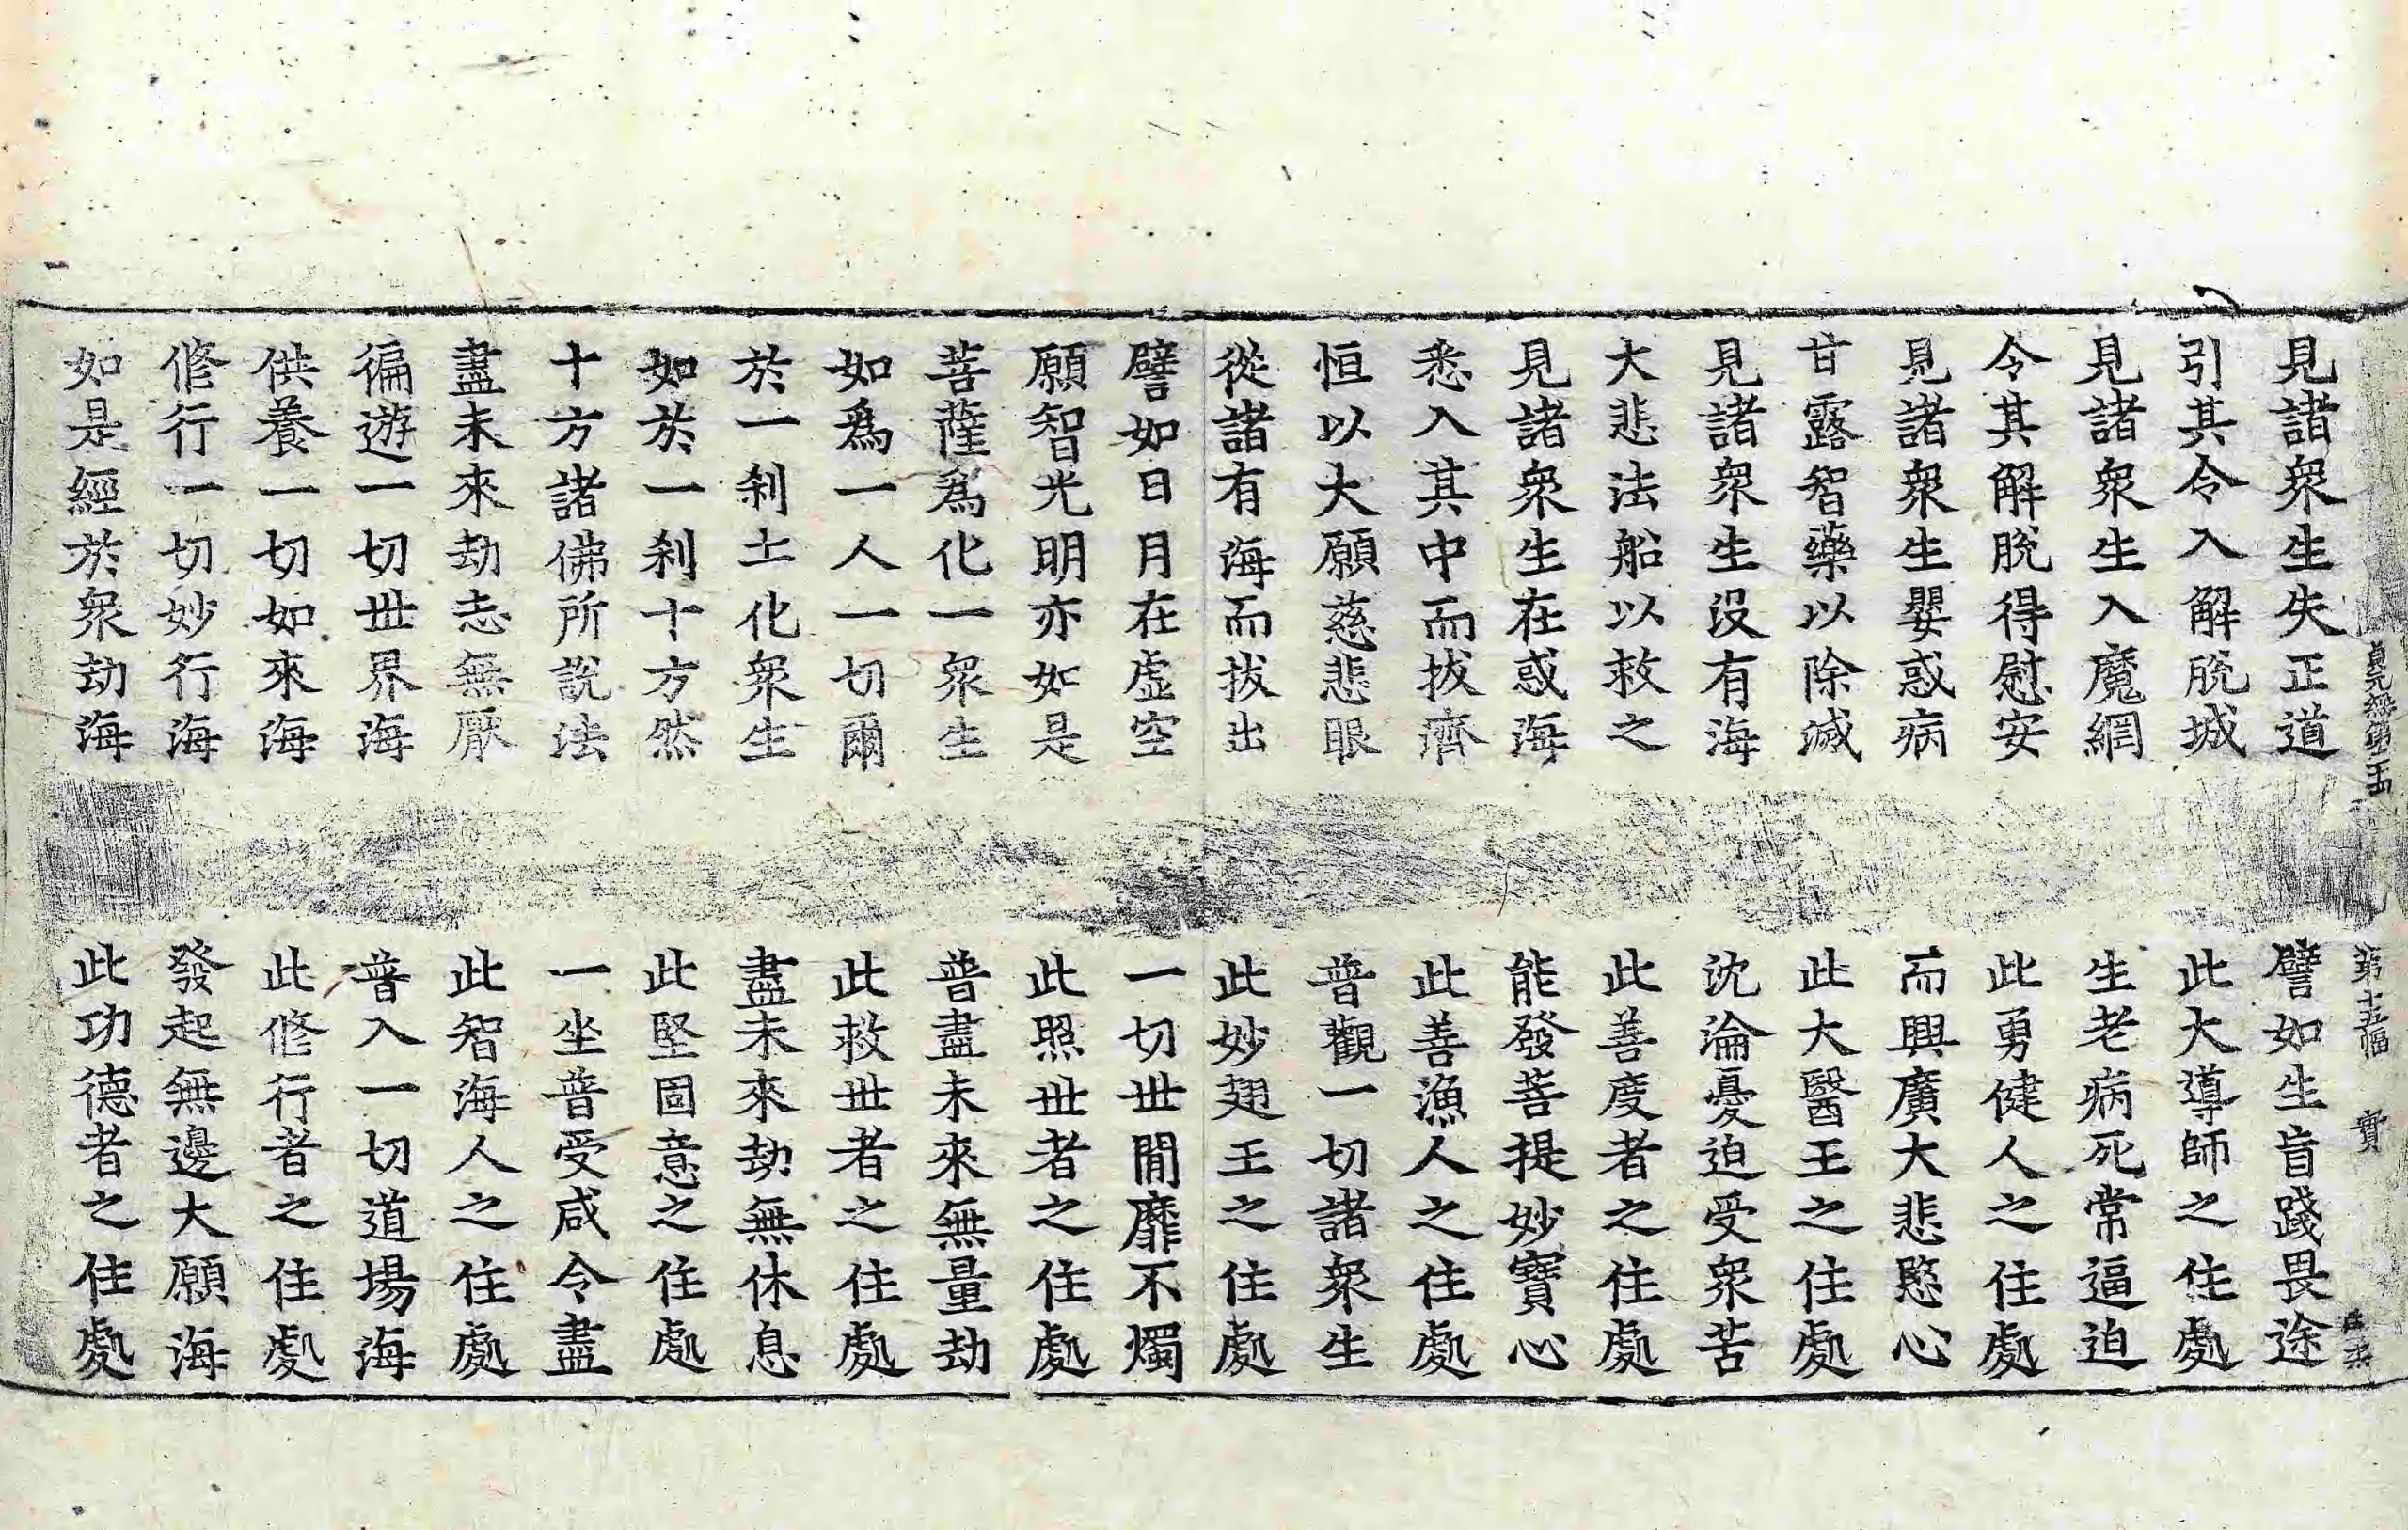 見諸衆生失正道　譬如生盲踐畏途
引其令入解脫城　此大導師之住處
見諸衆生入魔網　生老病死常逼迫
令其解脫得慰安　此勇健人之住處
見諸衆生嬰惑病　而興廣大悲愍心
甘露智藥以除滅　此大醫王之住處
見諸衆生沒有海　沈淪憂迫受衆苦
大悲法船以救之　此善度者之住處
見諸衆生在惑海　能發菩提妙寶心
悉入其中而拔濟　此善漁人之住處
恒以大願慈悲眼　普觀一切諸衆生
從諸有海而拔出　此妙翅王之住處
譬如日月在虛空　一切世閒靡不燭
願智光明亦如是　此照世者之住處
菩薩爲化一衆生　普盡未來無量劫
如爲一人一切爾　此救世者之住處
於一刹土化衆生　盡未來劫無休息
如於一刹十方然　此堅固意之住處
十方諸佛所說法　一坐普受咸令盡
盡未來劫志無厭　此智海人之住處
徧遊一切世界海　普入一切道場海
供養一切如來海　此修行者之住處
修行一切妙行海　發起無邊大願海
如是經於衆劫海　此功德者之住處